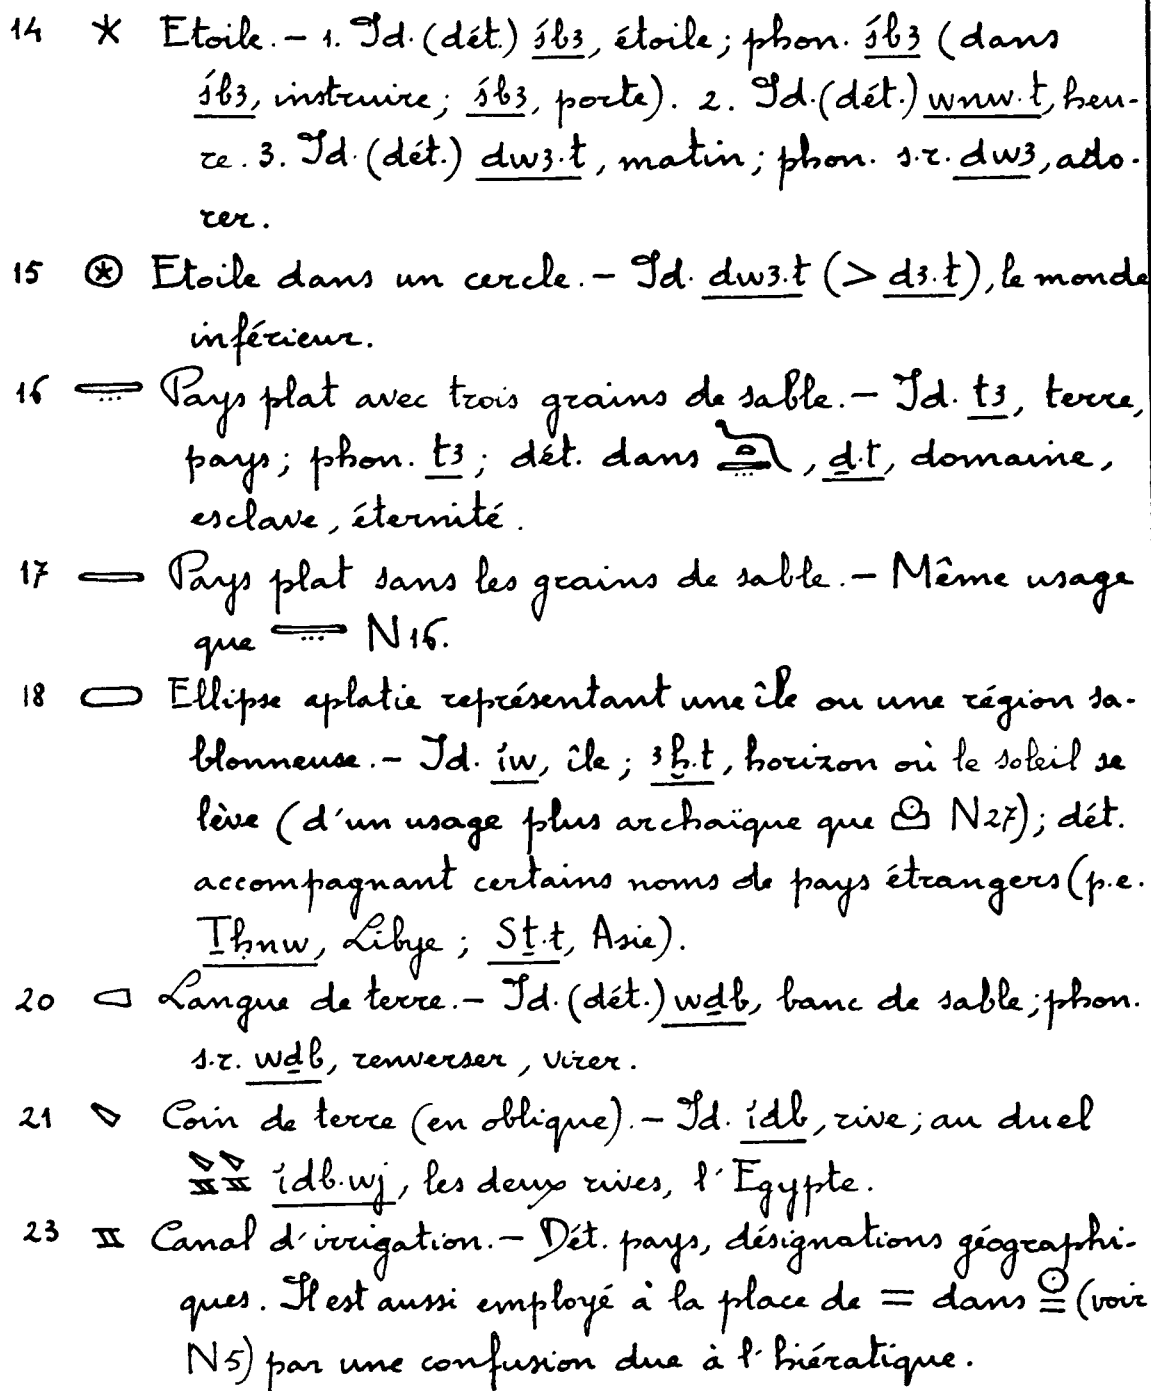 14 𓇼 Etoile. – 1. Id. (dét.) śbꜣ, étoile; phon. śbꜣ (dans
śbꜣ, instruire; śbꜣ, porte). 2. Id. (dét.) wnw.t, heu-
re. 3. Id. (dét.) dwꜣ.t, matin; phon. s.r. dwꜣ, ado-
rer.
15 𓇽 Etoile dans un cercle. – Id. dwꜣ.t (> dꜣ.t), le monde
inférieur.
16 𓇾 Pays plat avec trois grains de sable. – Id. tꜣ, terre,
pays; phon. tꜣ; dét. dans 𓆓𓏏𓇾, ḏ.t, domaine,
esclave, éternité.
17 𓇿 Pays plat sans les grains de sable. – Même usage
que 𓇾 N16.
18 𓈀 Ellipse aplatie représentant une île ou une région sa-
blonneuse. – Id. íw, île; ꜣḫ.t, horizon où le soleil se
lève (d'un usage plus archaïque que 𓈌 N27); dét.
accompagnant certains noms de pays étrangers (p.e.
Ṯḥnw, Libye; Sṯ.t, Asie).
20 𓈄 Langue de terre. – Id. (dét.) wḏb, banc de sable; phon.
s.r. wḏb, renverser, virer.
21 𓈅 Coin de terre (en oblique). – Id. ídb, rive; au duel
𓈅𓈅𓈇𓈇 ídb.wj, les deux rives, l'Egypte.
23 𓈇 Canal d'irrigation. – Dét. pays, désignations géographi-
ques. Il est aussi employé à la place de = dans 𓇳= (voir
N5) par une confusion due à l'hiératique.